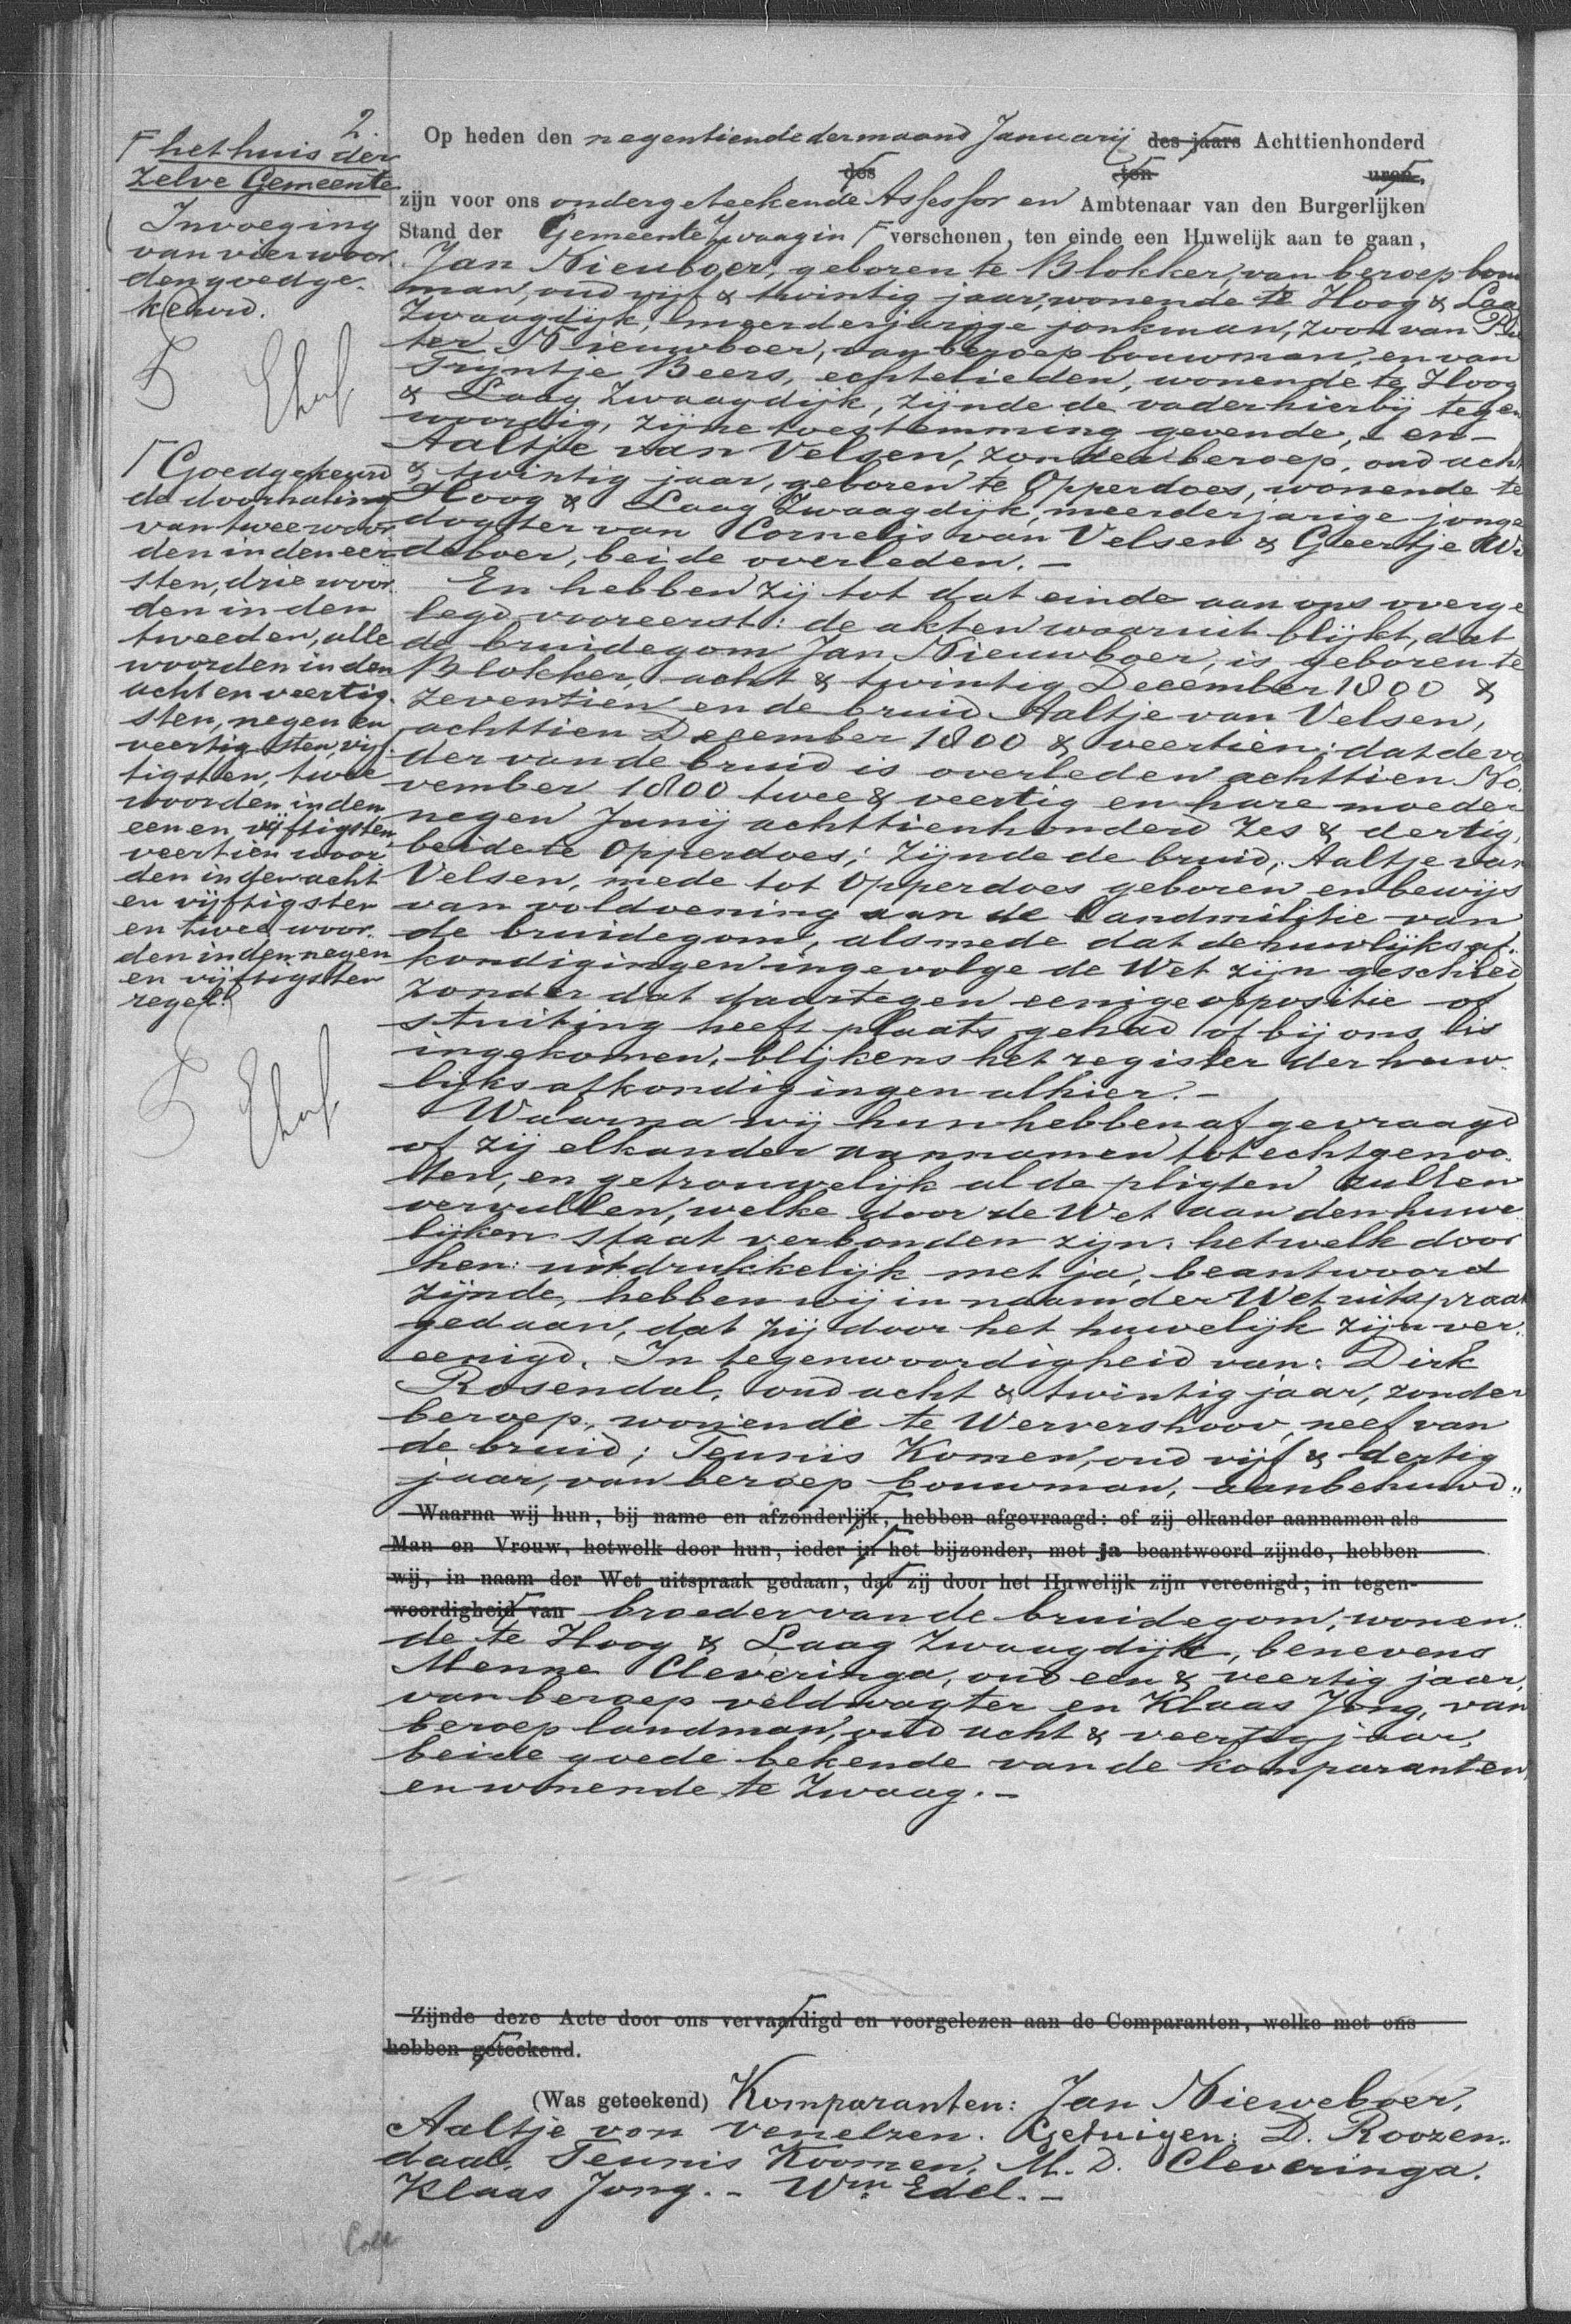 2.
Op heden den negentiende der maand Januarij des jaars Achttienhonderd
des ten uren,
zijn voor ons ondergeteekende Assessor en Ambtenaar van den Burgerlijken
Stand der Gemeente Zwaag in verschenen, ten einde een Huwelijk aan te gaan,
Jan Nieuboer, geboren te Blokker, van beroep bouw
man, oud vijf & twintig jaar, wonende te Hoog & Laag
Zwaagdijk, meerderjarige jonkman, zoon van Pie
ter Nieuwboer, van beroep bouwman, en van
Trijntje Beers, echtelieden, wonende te Hoog
& Laag Zwaagdijk, zijnde de vader hierbij tegen
woordig, zijne toestemming gevende, - en -
Aaltje van Velsen, zonder beroep, oud acht
& twintig jaar, geboren te Opperdoes, wonende te
Hoog & Laag Zwaagdijk, meerderjarige jonge
dogter van Cornelis van Velsen & Geertje
deboer, beide overleden. -
En hebben zij tot dat einde aan ons overge
legd vooreerst: de akten waaruit blijkt, dat
de bruidegom Jan Nieuwboer, is geboren te
Blokker, acht & twintig December 1800 &
zeventien en de bruid Aaltje van Velsen,
achttien December 1800 & veertien; dat de va
der van de bruid is overleden achttien No
vember 1800 twee & veertig en hare moeder
negen Junij achttienhonderd zes & dertig,
beide te Opperdoes; zijnde de bruid, Aaltje van
Velsen, mede tot Opperdoes geboren en bewijs
van voldoening aan de landmilitie van
de bruidegom, alsmede dat de huwlijks af..
kondigingen ingevolge de Wet zijn geschied
zonder dat daartegen eenige oppositie of
stuiting heeft plaats gehad of bij ons is
ingekomen, blijkens het register der huw
lijks afkondigingen alhier. -
Waarna wij hun hebben afgevraagd
of zij elkander aannamen tot echtgenoo
ten, en getrouwelijk al de pligten zullen
vervullen, welke door de Wet aan den huwe
lijken staat verbonden zijn. hetwelk door
hen: uitdrukkelijk met ja, beantwoord
zijnde, hebben wij in naam der Wet uitspraak
gedaan, dat zij door het huwelijk zijn ver..
eenigd. In tegenwoordigheid van: Dirk
Rosendal, oud acht & twintig jaar, zonder
beroep, wonende te Wervershoov, neef van
de bruid; Teunis Komen, oud vijf & dertig
jaar, van beroep bouwman, aanbehuwd..
Waarna wij hun, bij name en afzonderlijk, hebben afgevraagd: of zij elkander aannamen als
Man en Vrouw, hetwelk door hun, ieder in het bijzonder, met ja beantwoord zijnde, hebben
wij, in naam der Wet uitspraak gedaan, dat zij door het Huwelijk zijn vereenigd; in tegen-
woordigheid van broeder van de bruidegom, wonen..
de te Hoog & Laag Zwaagdijk, benevens
Menne Cleveringa, oud een & veertig jaar,
van beroep veldwagter en Klaas Jong, van
beroep landman, oud acht & veertig jaar,
beide goede bekende van de komparanten,
en wonende te Zwaag. -
Zijnde deze Acte door ons vervaardigd en voorgelezen aan de Comparanten, welke met ons
hebben geteekend.
(Was geteekend) Komparanten: Jan Nieweboer,
Aaltje von venelzen. Getuigen: D. Roozen..
daal. Teunis Koomen, M. D. Cleveringa.
Klaas Jong. - Wm Edel. -
het huis der
zelve Gemeente
Invoeging
van vier woor
den goedge-
keurd.
Goedgekeurd
de doorhaling
van twee woor
den in den eer
sten, drie woor
den in den
tweeden, alle
woorden in den
acht en veertig
sten, negen en
veertigsten, vijf
tigsten, twee
woorden in den
een en vijftigsten
veertien woor
den in den acht
en vijftigsten
en twee woor
den in den negen
en vijftigsten
regel.